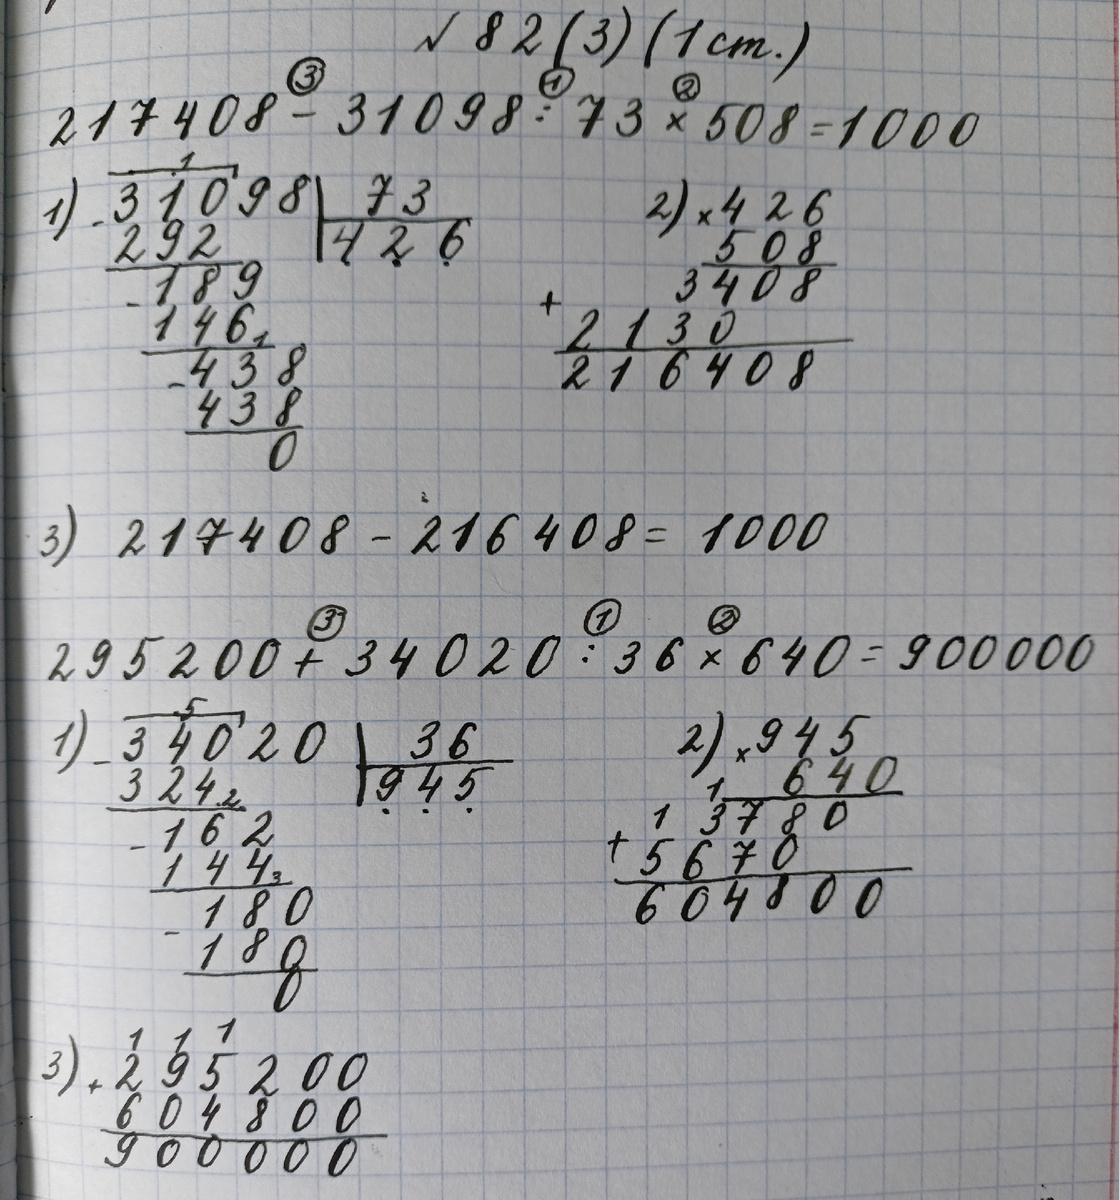 № 82 (3) (1 ст.)
③ ① ②
217408 - 31098 : 73 × 508 = 1000
1
1) - 31098 | 73
292 | 426
- 189
146
1
- 438
438
0
2) × 426
508
3408
+ 2130
216408
3) 217408 - 216408 = 1000
③ ① ②
295200 + 34020 : 36 × 640 = 900000
5
1) - 34020 | 36
324 | 945
2
- 162
144
3
- 180
180
0
2) × 945
640
1 1
3780
+ 5670
604800
1 1 1
3) + 295200
604800
900000